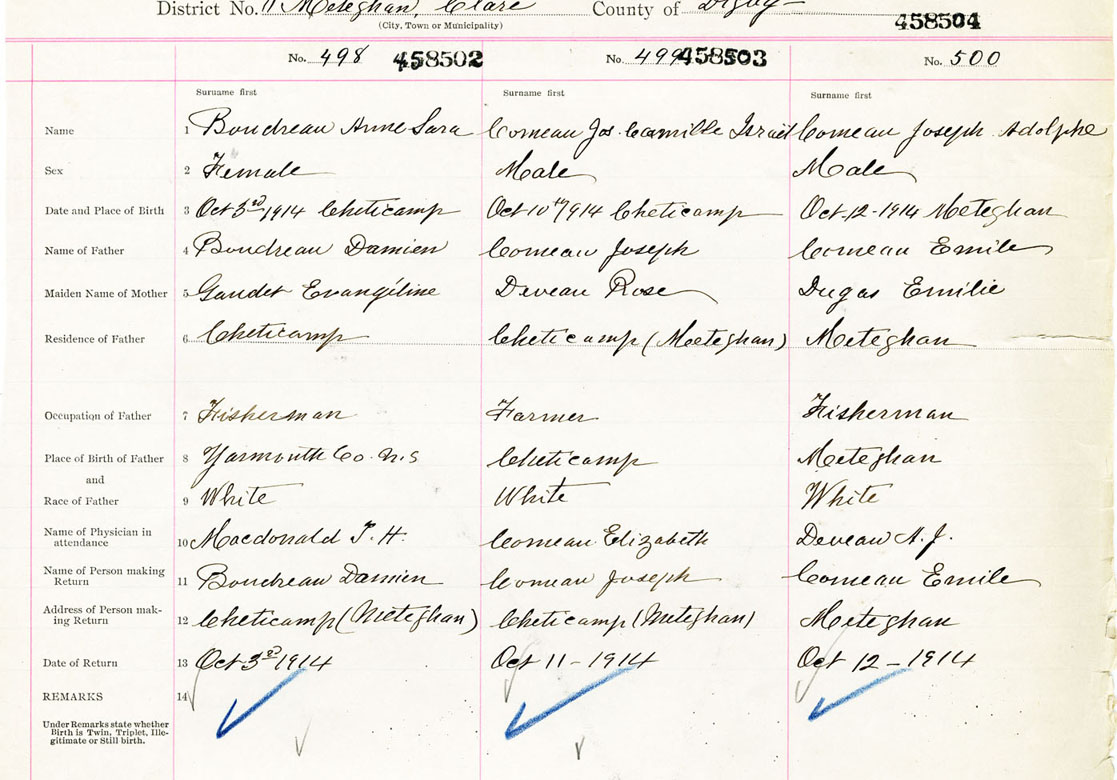 District No. 11 Meteghan, Clare County of Digby
(City, Town or Municipality)
458504
No. 498 458502 No. 499 458503 No. 500
Surname first Surname first Surname first
Name 1 Boudreau Anne Sara Comeau Jos. Camille Israel Comeau Joseph Adolphe
Sex 2 Female Male Male
Date and Place of Birth 3 Oct 3rd 1914 Cheticamp Oct 10th 1914 Cheticamp Oct. 12 - 1914 Meteghan
Name of Father 4 Boudreau Damien Comeau Joseph Comeau Emile
Maiden Name of Mother 5 Gaudet Evangéline Deveau Rose Dugas Emilie
Residence of Father 6 Cheticamp Cheticamp (Meteghan) Meteghan
Occupation of Father 7 Fisherman Farmer Fisherman
Place of Birth of Father 8 Yarmouth Co. N.S Cheticamp Meteghan
and
Race of Father 9 White White White
Name of Physician in
attendance 10 Macdonald T. H. Comeau Elizabeth Deveau A. J.
Name of Person making
Return 11 Boudreau Damien Comeau Joseph Comeau Emile
Address of Person mak-
ing Return 12 Cheticamp (Meteghan) Cheticamp (Meteghan) Meteghan
Date of Return 13 Oct 3rd 1914 Oct 11 - 1914 Oct 12 - 1914
REMARKS 14
Under Remarks state whether
Birth is Twin, Triplet, Ille-
gitimate or Still birth.